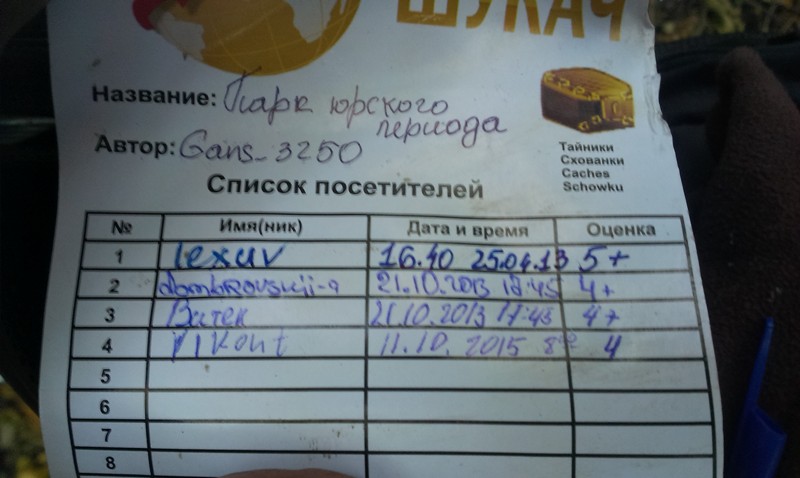 ШУКАЧ
Название: Парк юрского
периода
Автор: Gans_3250
Тайники
Схованки
Caches
Schowku
Список посетителей
№ Имя(ник) Дата и время Оценка
1 lexuv 16.40 25.04.13 5+
2 dombrovskii-a 21.10.2013 17:45 4+
3 Витек 21.10.2013 17:45 4+
4 Vikont 11.10.2015 8⁰⁰ 4
5
6
7
8